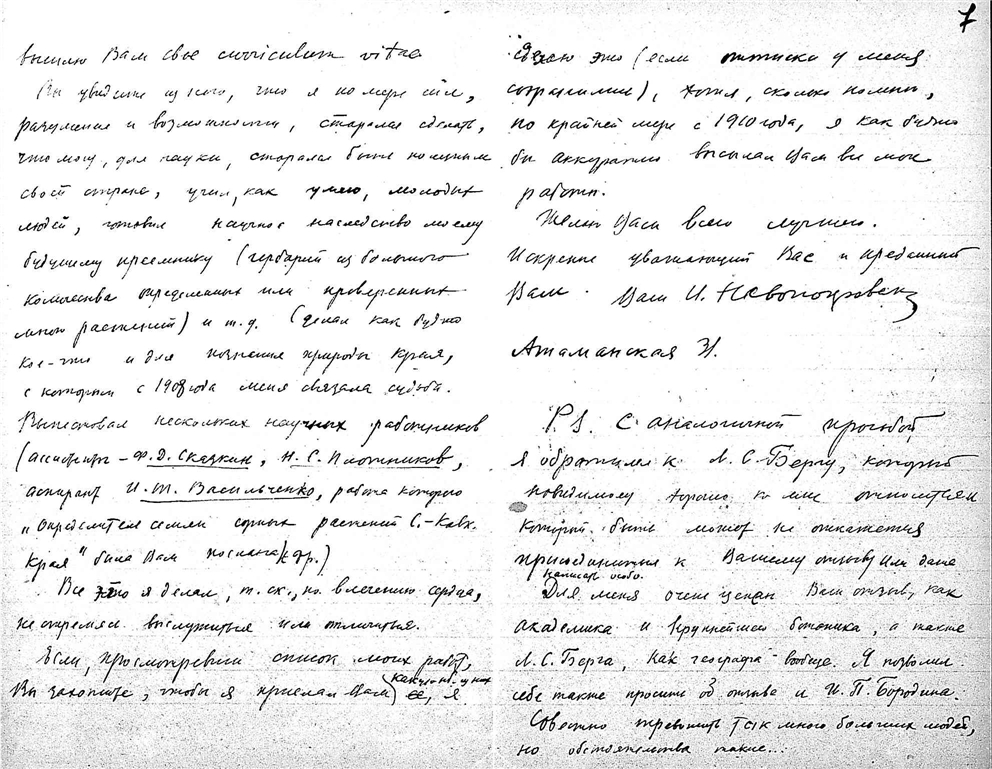 7
высылаю Вам свое curriculum vitae
Вы увидите из него, что я по мере сил,
разумения и возможности, старался сделать,
что могу, для науки, старался быть полезным
своей стране, учил, как умею, молодых
людей, готовил научное наследство моему
будущему преемнику (гербарий из большого
количества определенных или проверенных
мною растений) и т.д. (делал как будто
кое-что и для познания природы края,
с которым с 1908 года меня связала судьба.
Выпестовал нескольких научных работников
(ассистенты - Ф.Д. Сказкин, Н.С. Плотников,
аспирант И.Т. Васильченко, работа которого
„Определитель семян сорных растений С.-Кавк.
Края" была Вам послана) (и др.)
Все это я делал, т. ск., по влечению сердца,
не стремясь выслужиться или отличиться.
Если, просмотревши список моих работ,
Вы захотите, чтобы я прислал Вам какую-ниб. из них, я
сделаю это (если оттиски у меня
сохранились), хотя, сколько помню,
по крайней мере с 1910 года, я как будто
бы аккуратно высылал Вам все мои
работы.
Желаю Вам всего лучшего.
Искренне уважающий Вас и преданный
Вам. Ваш И. Новопокровский
Атаманская 31.
P.S. С аналогичной просьбой
я обратился к Л.С. Бергу, который
повидимому хорошо ко мне относится и
который быть может не откажется
присоединиться к Вашему отзыву или даже
написать особо.
Для меня очень ценен Ваш отзыв, как
академика и крупнейшего ботаника, а также
Л.С. Берга, как географа вообще. Я позволил
себе также просить об отзыве и И.П. Бородина.
Совестно тревожить так много больших людей,
но обстоятельства такие...